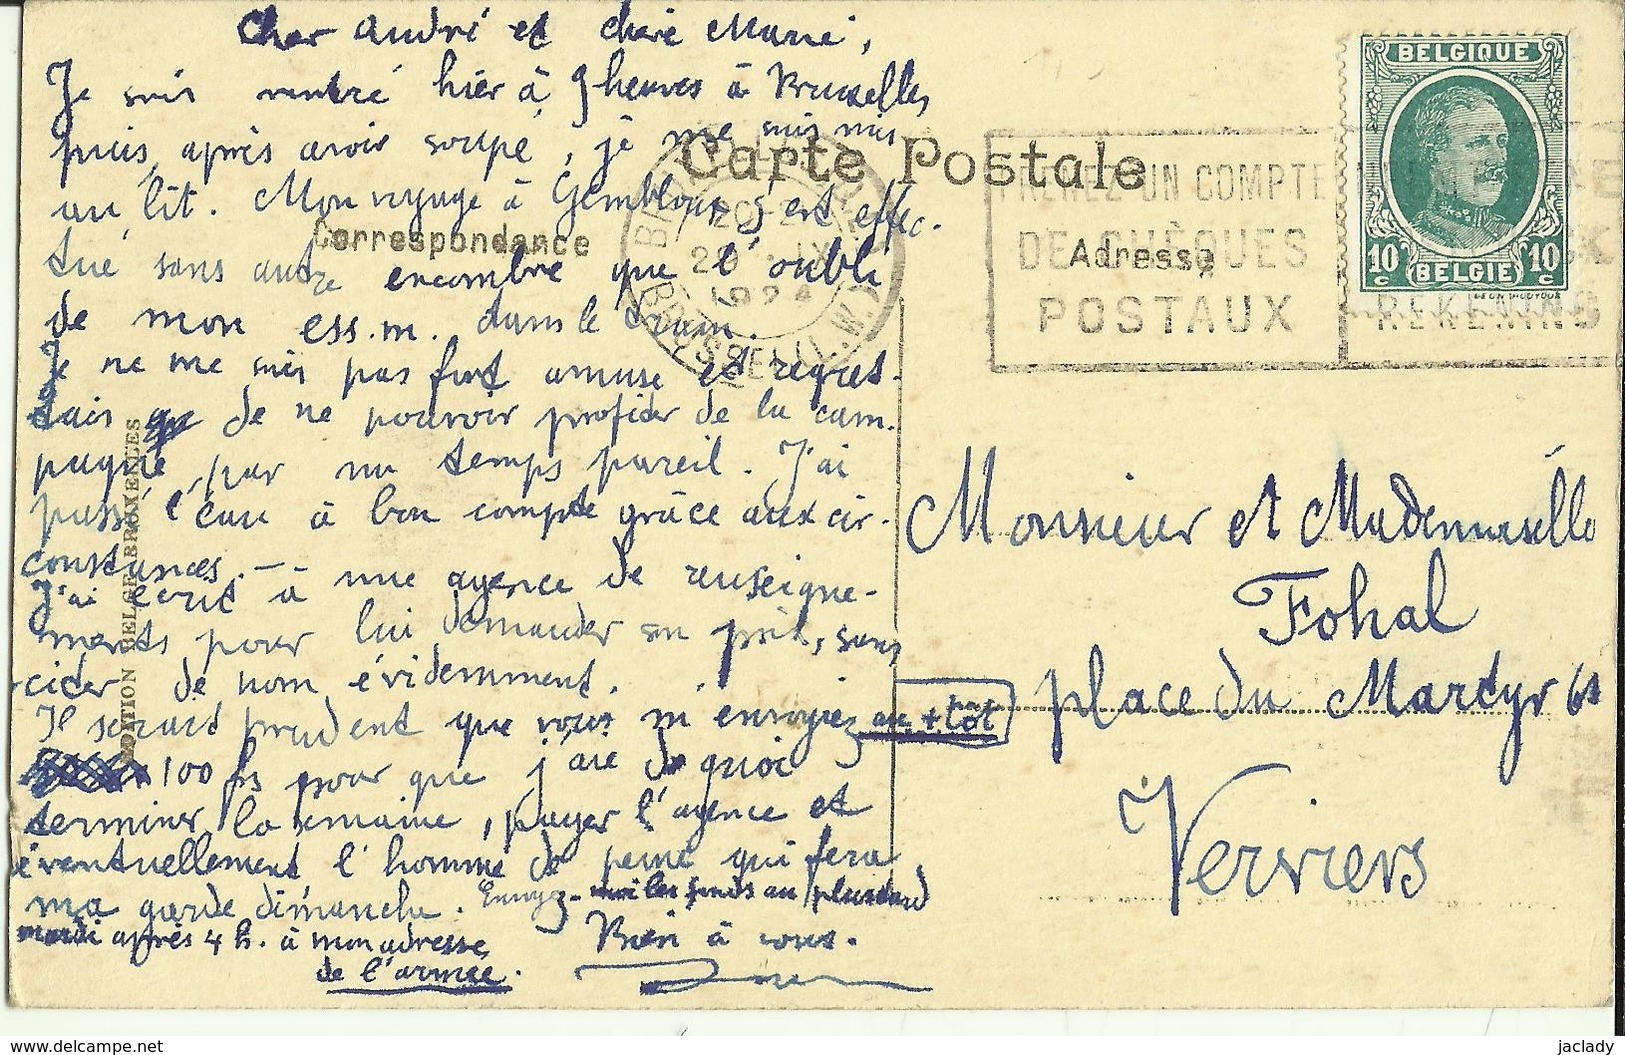 Cher André et chère Marie,
Je suis rentré hier à 9 heures à Bruxelles
puis, après avoir soupé, je me suis mis
au lit. Mon voyage à Gembloux s'est effec-
tué sans autre encombre que l'oubli
de mon ess.m. dans le train.
Je ne me suis pas fort amusé et regret-
tais de ne pouvoir profiter de la cam-
pagne, par un temps pareil. J'ai
passé l'eau à bon compte grâce aux cir-
constances. —
J'ai écrit à une agence de renseigne-
ments pour lui demander son prix, sans
citer de nom évidemment.
Il serait prudent que vous m'envoyiez au + tôt
100 frs pour que j'aie de quoi
terminer la semaine, payer l'agence et
éventuellement l'homme de peine qui fera
ma garde dimanche. Envoyez-moi les fonds au plus tard
mardi après 4 h. à mon adresse
de l'armée.
Bien à vous.
Carte Postale
Correspondance
Adresse
EDITION BELGE BRUXELLES
BELGIQUE
10 c
BELGIE
10 c
1924
COMPTE
DE CHÈQUES
POSTAUX
REKENING
Monsieur et Mademoiselle
Fohal
place du Martyr 61
Verviers
http://www.delcampe.net
jaclady